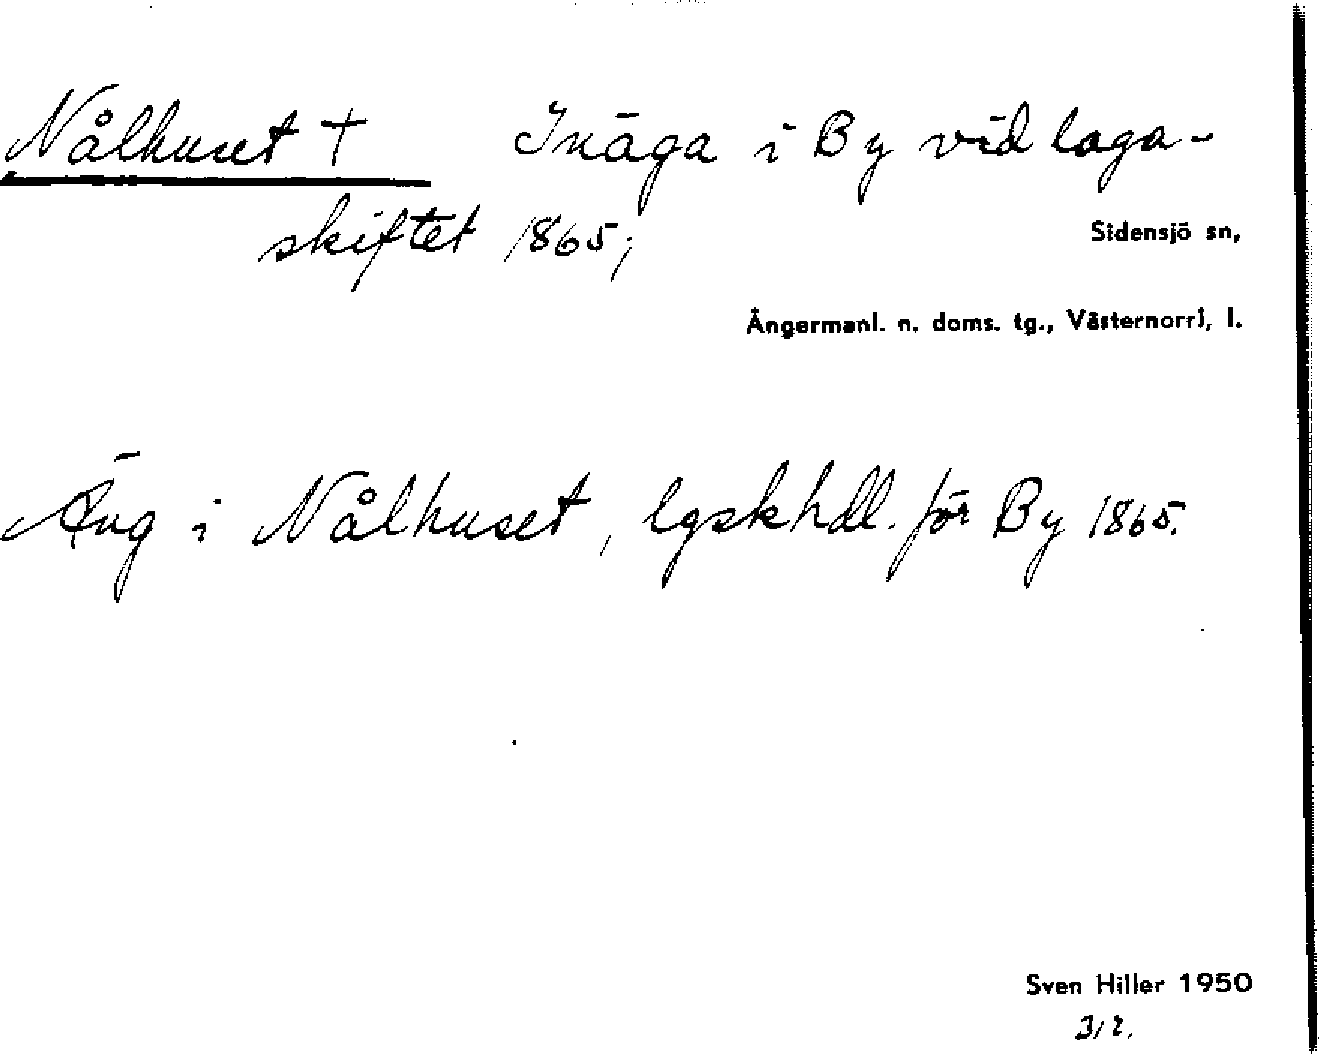 Nålhuset † Inäga i By vid laga-
skiftet 1865;
Sidensjö sn,
Ångermanl. n. doms. tg., Västernorrl, l.
Äng i Nålhuset, lgskhdl. för By 1865.
Sven Hiller 1950
3/2.